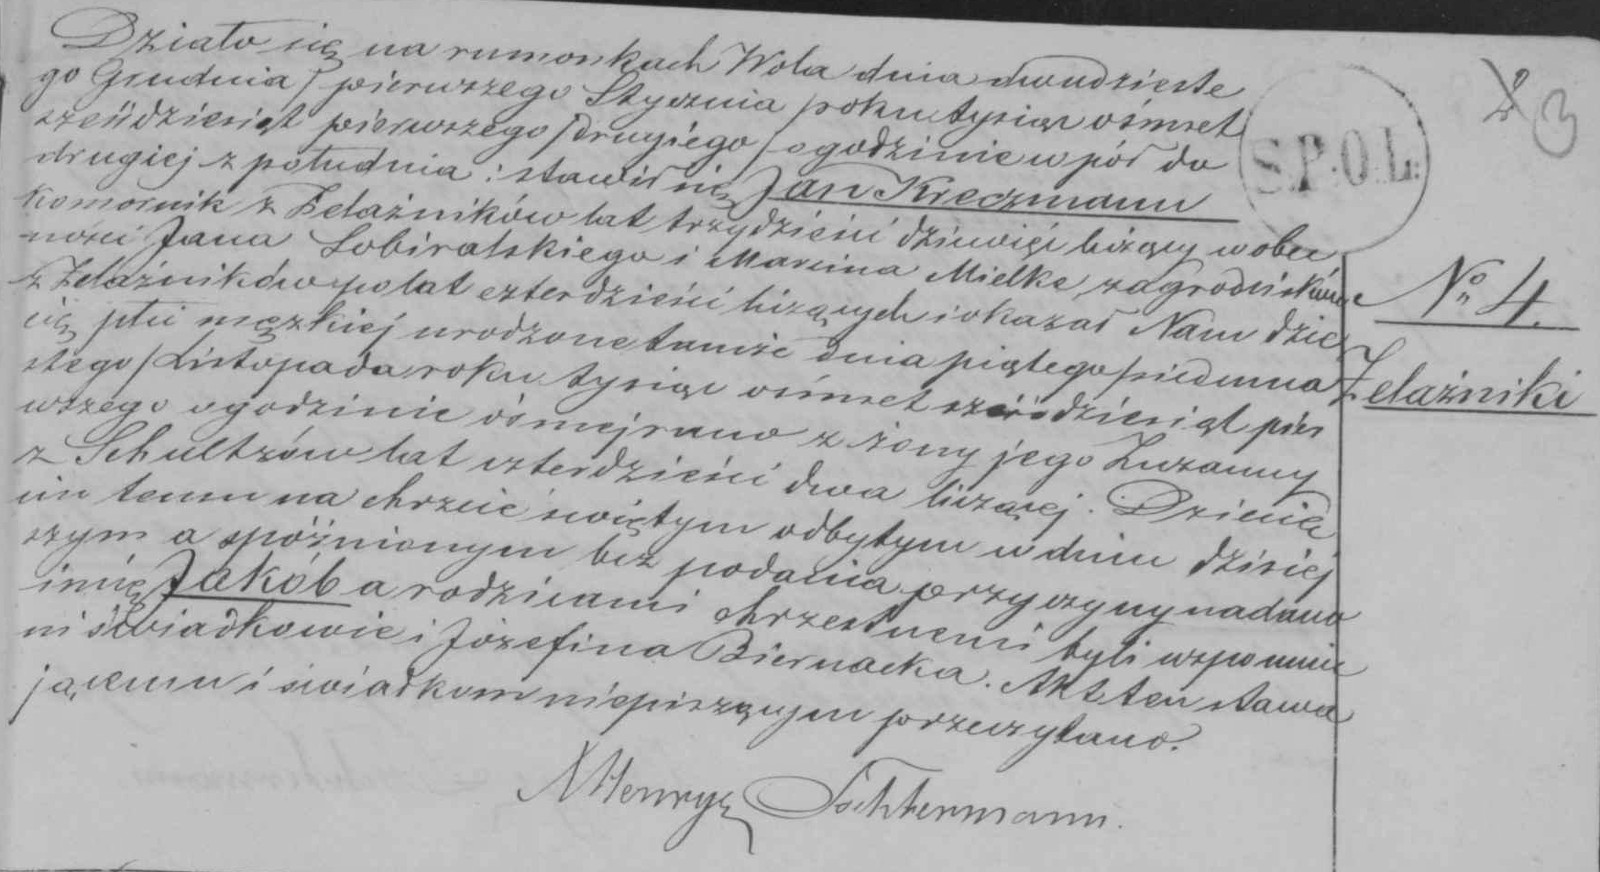 Działo się na rumonkach Wola dnia dwudzieste
go Grudnia / pierwszego Stycznia / roku tysiąc ośmset
sześdziesiąt pierwszego / drugiego / o godzinie w pół do
drugiej z południa: stawił się Jan Kreczmann
komornik z Żelaźników lat trzydzieści dziewięć liczący w obec
ności Jana Sobiralskiego i Marcina Mielke, zagrodników
z Żelaźników po lat czterdzieści liczących i okazał Nam dzie
cię płci męzkiej urodzone tamże dnia piątego / siedmna
stego / Listopada roku tysiąc ośmset sześdziesiąt pier
wszego o godzinie ósmej rano z żony jego Zuzanny
z Schultzów lat czterdzieści dwa liczącej. Dziecię
ciu temu na chrzcie świętym odbytym w dniu dzisiej
szym a spóźnionym bez podania przyczyny nadano
imię Jakób a rodzicami chrzestnemi byli wspomnie
ni świadkowie i Józefina Biernacka. Akt ten stawa
jącemu i świadkom niepiszącym przeczytano.
Henryk
S.P.O.L.
3
No 4.
Żelaźniki